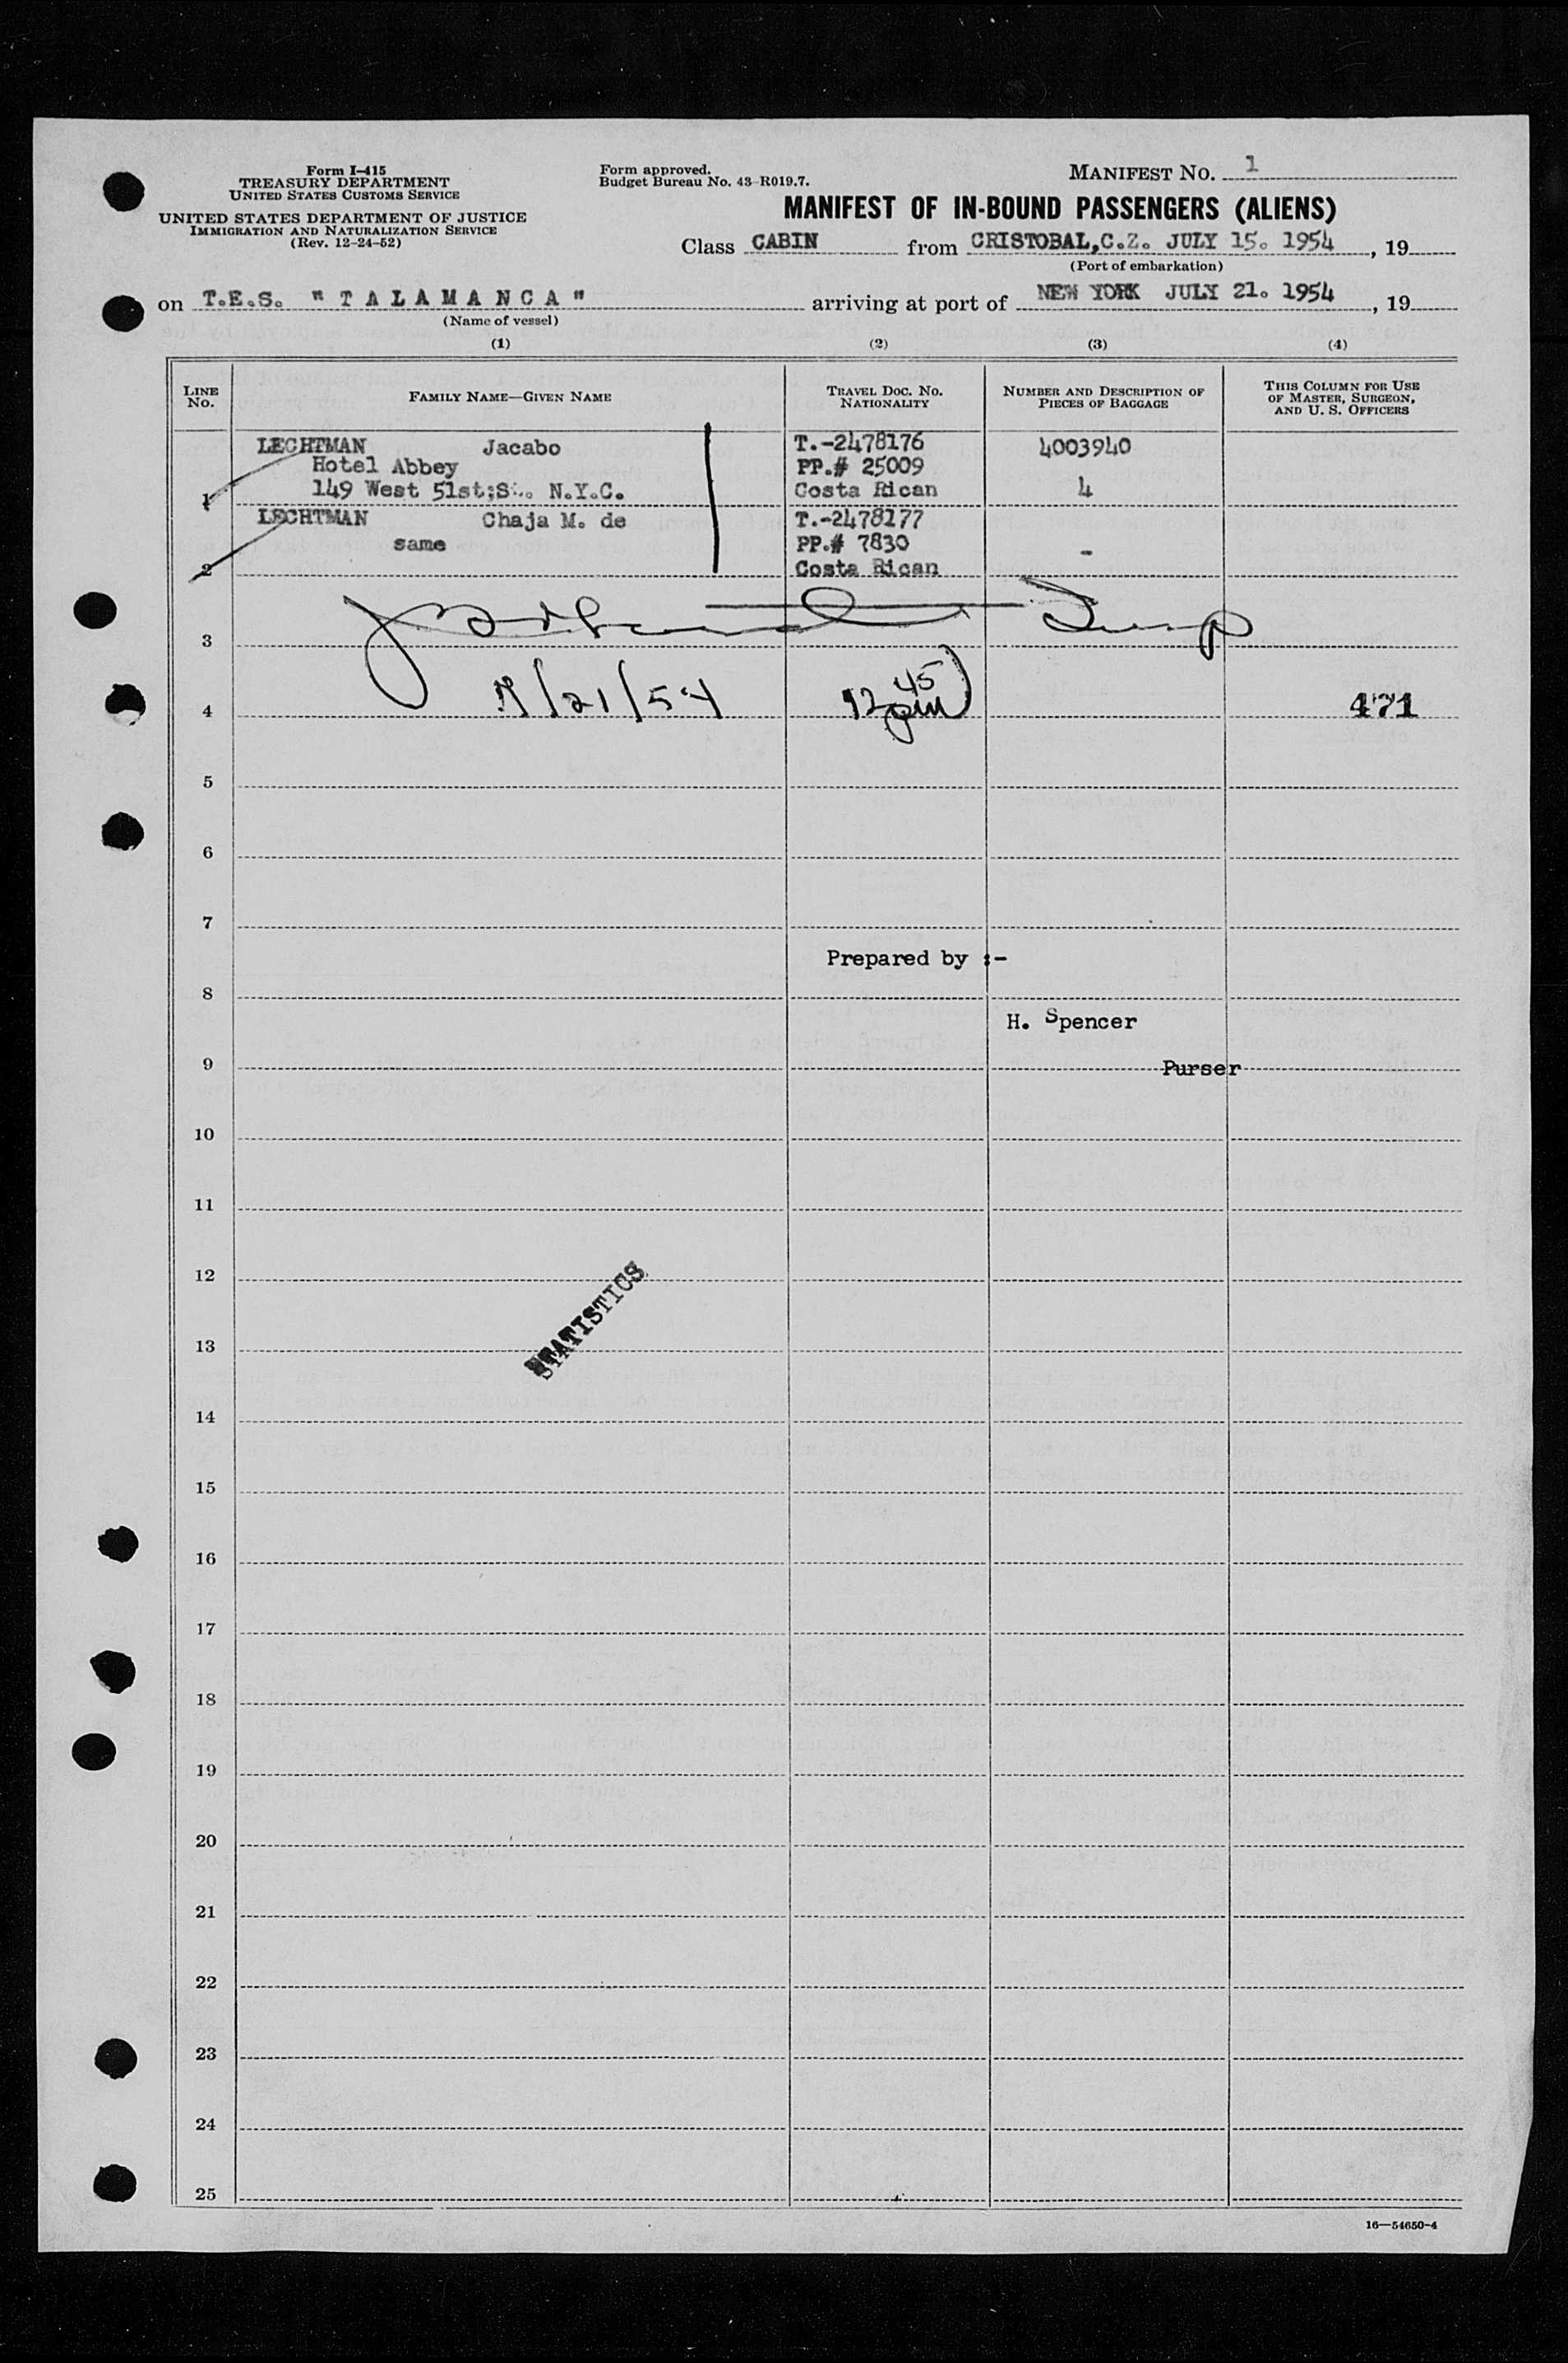 Form I-415
TREASURY DEPARTMENT
UNITED STATES CUSTOMS SERVICE
UNITED STATES DEPARTMENT OF JUSTICE
IMMIGRATION AND NATURALIZATION SERVICE
(Rev. 12-24-52)
Form approved.
Budget Bureau No. 43-R019.7.
MANIFEST NO. 1
MANIFEST OF IN-BOUND PASSENGERS (ALIENS)
Class CABIN from CRISTOBAL,C.Z. JULY 15. 1954, 19
(Port of embarkation)
on T.E.S. "T A L A M A N C A" arriving at port of NEW YORK JULY 21. 1954, 19
(Name of vessel)
(1) (2) (3) (4)
LINE No. FAMILY NAME—GIVEN NAME TRAVEL DOC. NO. NATIONALITY NUMBER AND DESCRIPTION OF PIECES OF BAGGAGE THIS COLUMN FOR USE OF MASTER, SURGEON, AND U. S. OFFICERS
LECHTMAN Jacabo T.-2478176 4003940
Hotel Abbey PP.# 25009
1 149 West 51st;St. N.Y.C. Costa Rican 4
LECHTMAN Chaja M. de T.-2478177
same PP.# 7830 -
2 Costa Rican
3
4 7/21/54 12 45 pm 471
5
6
7
Prepared by :-
8
H. Spencer
9 Purser
10
11
12
STATISTICS
13
14
15
16
17
18
19
20
21
22
23
24
25
16—54650-4